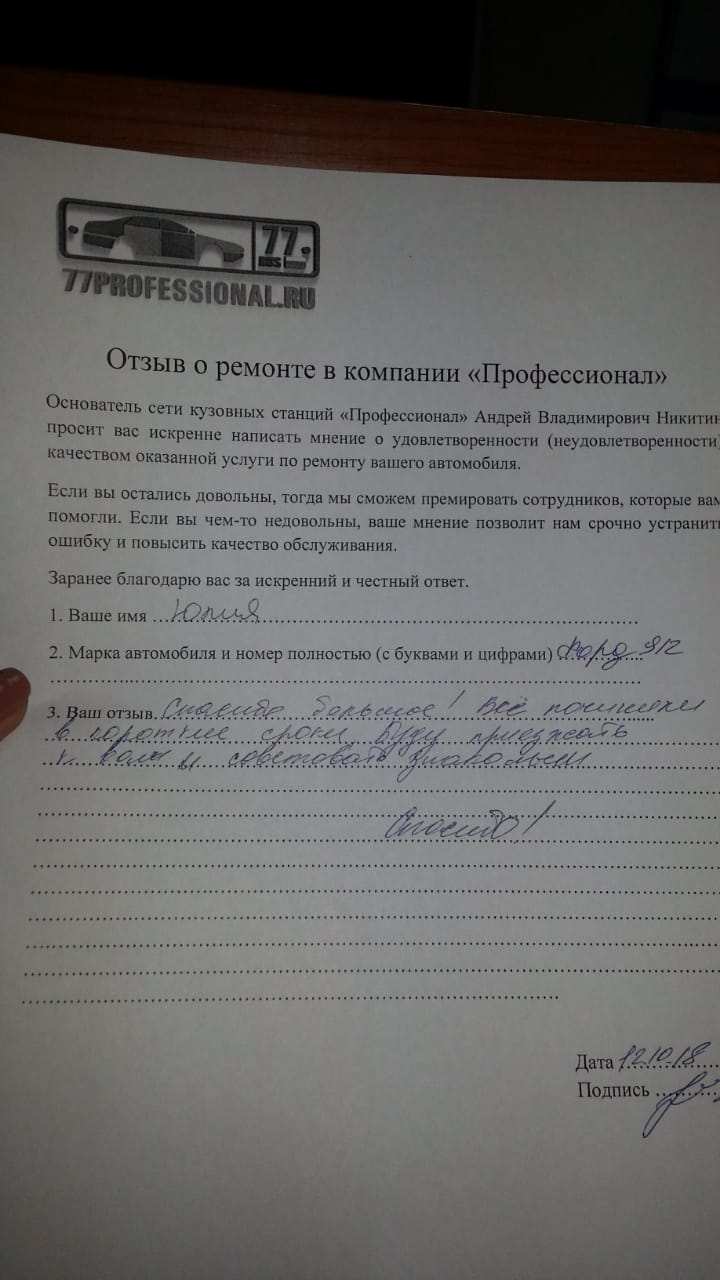 77
RUS
77PROFESSIONAL.RU
Отзыв о ремонте в компании «Профессионал»
Основатель сети кузовных станций «Профессионал» Андрей Владимирович Никитин
просит вас искренне написать мнение о удовлетворенности (неудовлетворенности)
качеством оказанной услуги по ремонту вашего автомобиля.
Если вы остались довольны, тогда мы сможем премировать сотрудников, которые вам
помогли. Если вы чем-то недовольны, ваше мнение позволит нам срочно устранить
ошибку и повысить качество обслуживания.
Заранее благодарю вас за искренний и честный ответ.
1. Ваше имя Юлия
2. Марка автомобиля и номер полностью (с буквами и цифрами) Форд 912
3. Ваш отзыв. Спасибо большое! Всё починили
в короткие сроки Буду приезжать
к вам и советовать знакомым
Спасибо!
Дата 12.10.18
Подпись